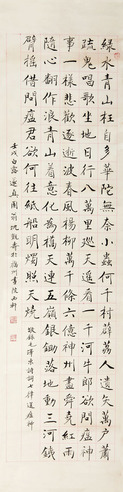 綠水青山枉自多華陀無奈小蟲何千村薜荔人遺矢萬戶蕭
疏鬼唱歌坐地日行八萬里巡天遙看一千河牛郎欲問瘟神
事一樣悲歡逐逝波春風楊柳萬千條六億神州盡舜堯紅雨
隨心翻作浪青山着意化為橋天連五嶺銀鋤落地動三河鐵
臂搖借問瘟君欲何往紙船明燭照天燒 敬錄毛澤東詩詞七律送瘟神
壬戌白露